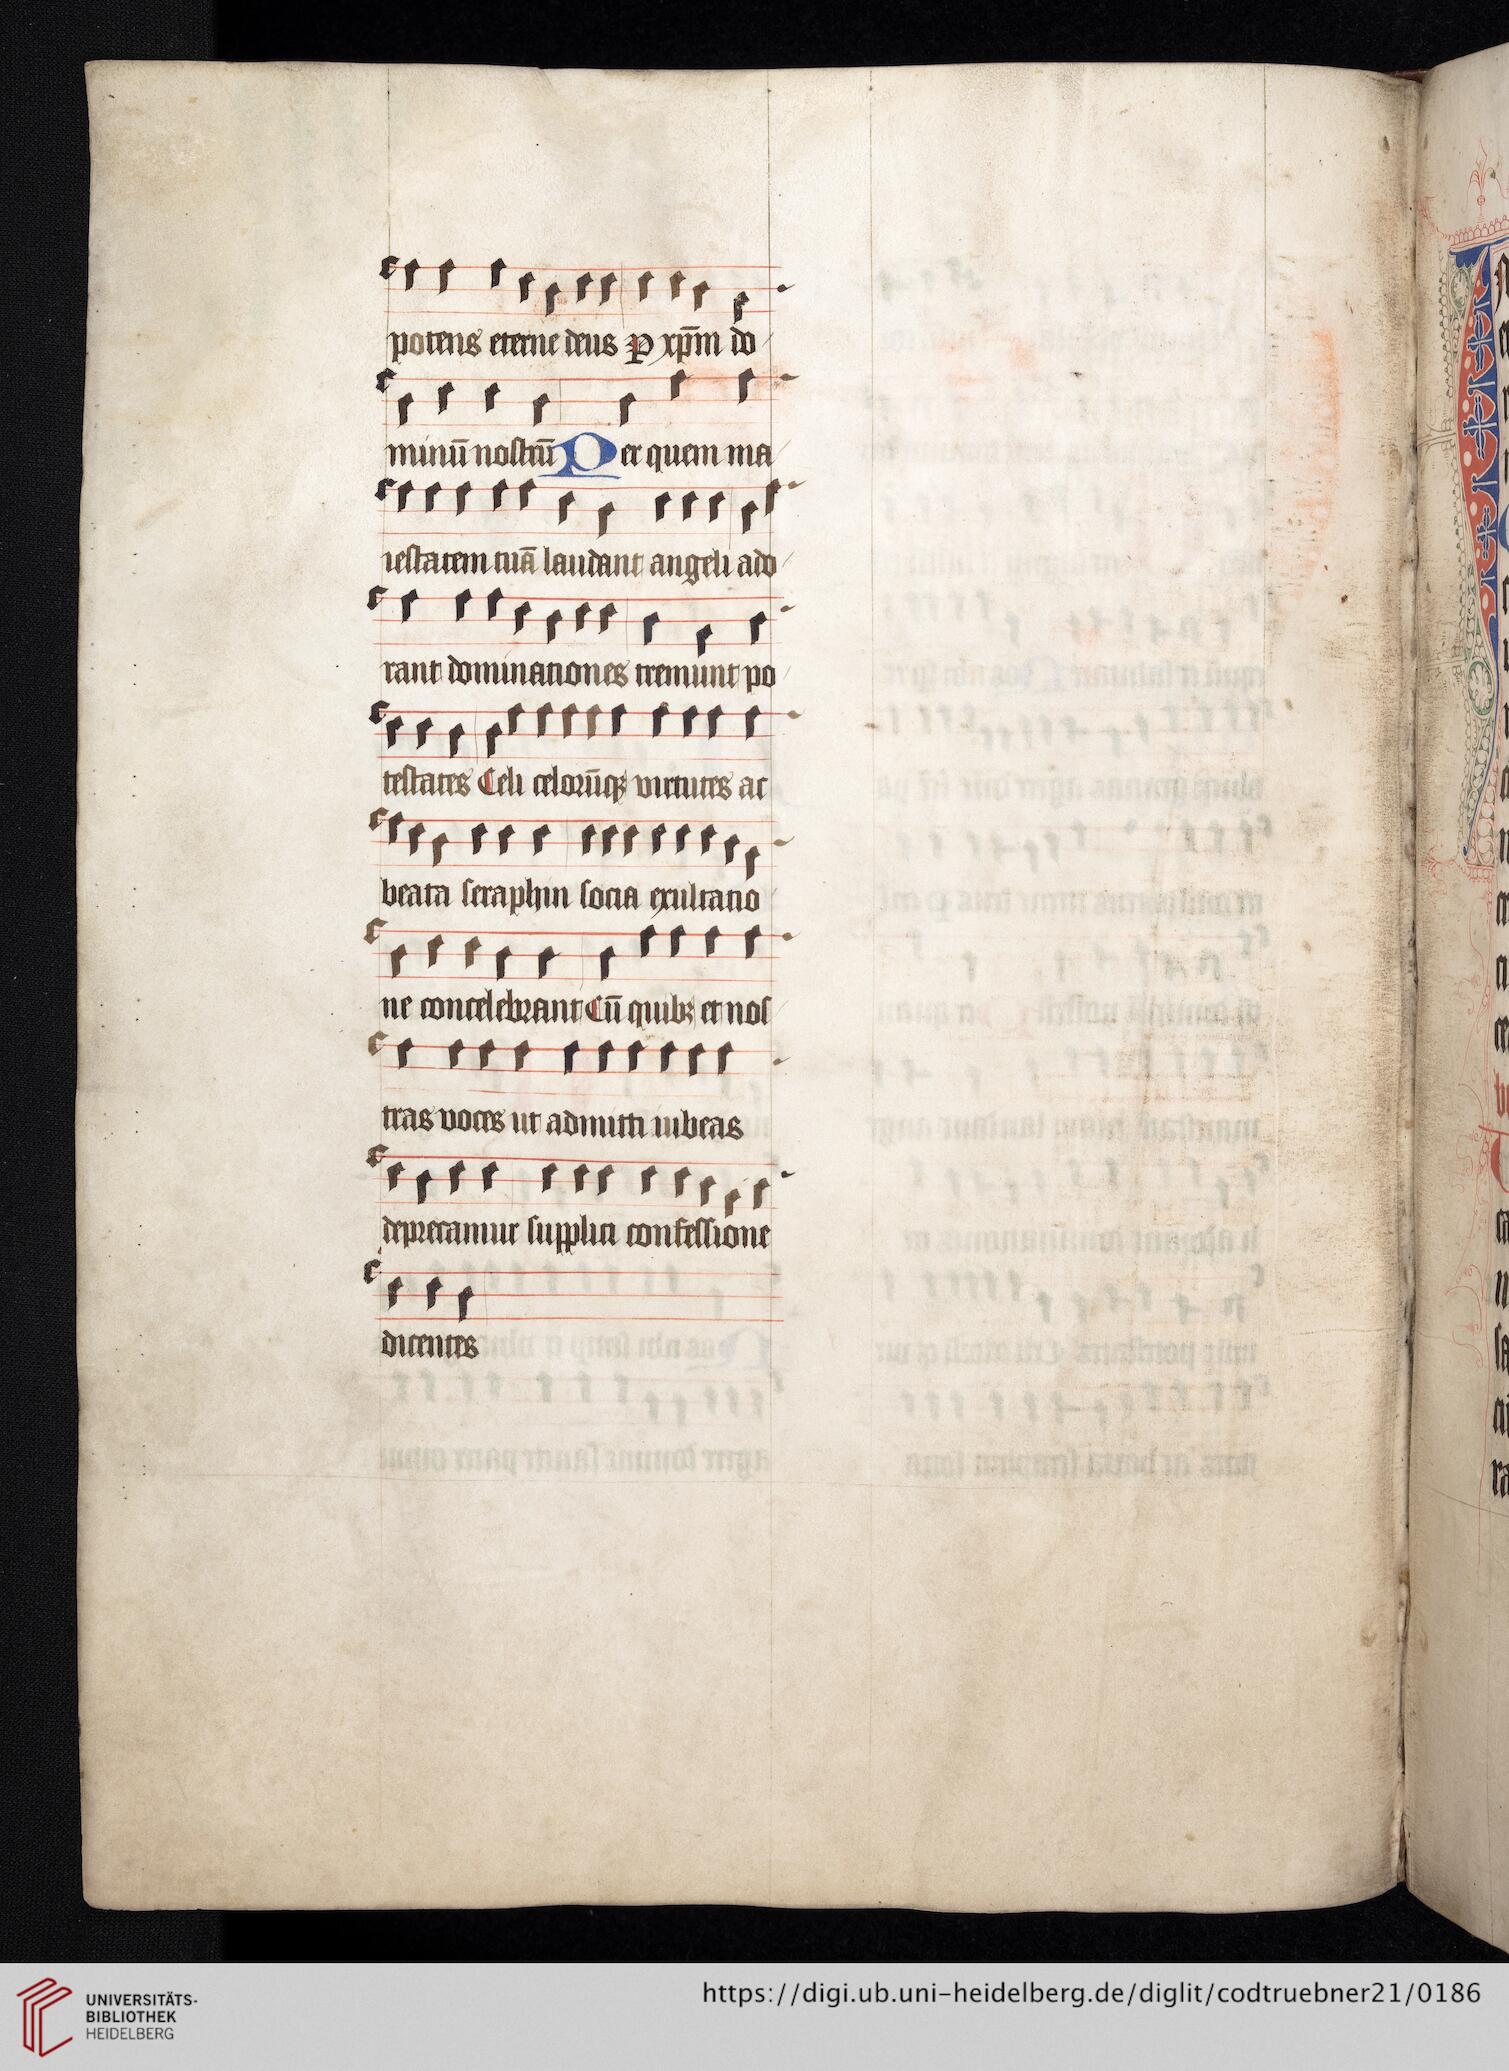 potens eterne deus ꝑ xp̄m do
minū nostrū Per quem ma
iestatem tuā laudant angeli ado
rant dominationes tremunt po
testates Celi celorūqꝫ virtutes ac
beata seraphin socia exultatio
ne concelebrant Cū quibꝫ et nos
tras voces ut admitti iubeas
deprecamur supplici confessione
dicentes
UNIVERSITÄTS-
BIBLIOTHEK
HEIDELBERG
https://digi.ub.uni-heidelberg.de/diglit/codtruebner21/0186